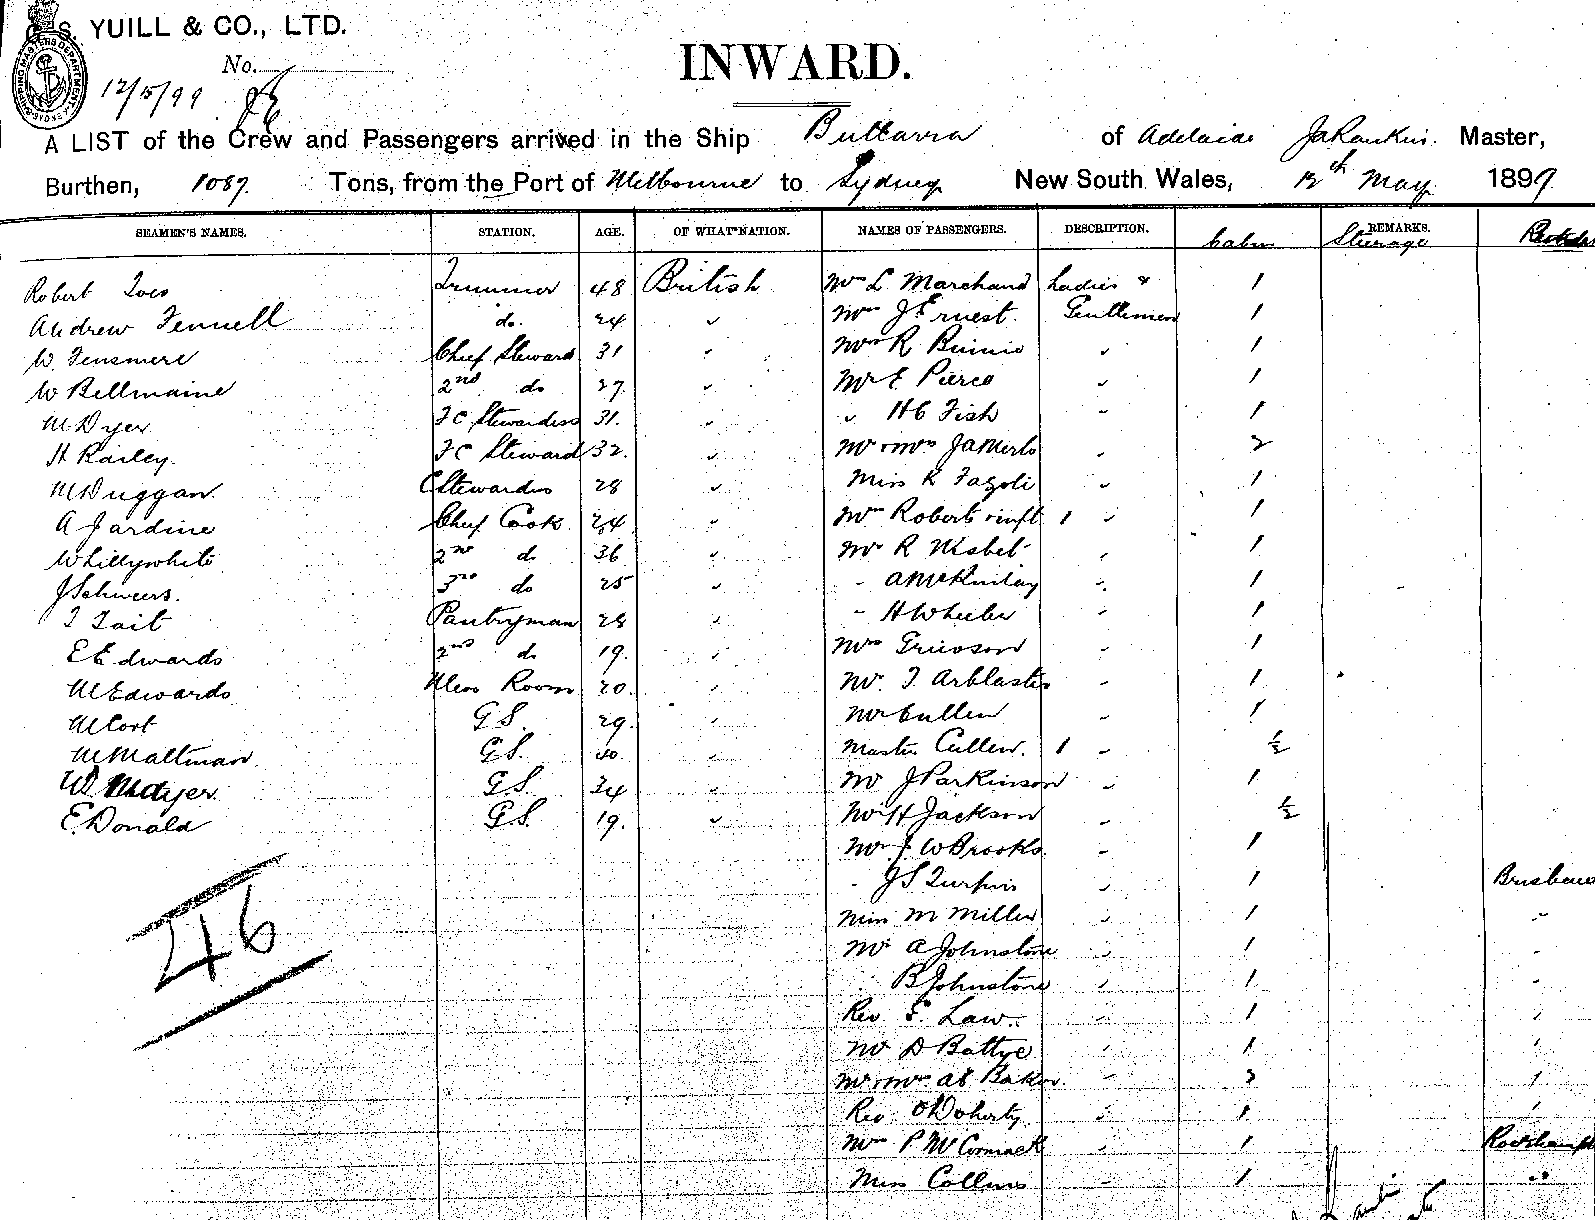 S. YUILL & CO., LTD.
No.
12/5/99
INWARD.
A LIST of the Crew and Passengers arrived in the Ship Buttarra of Adelaide JaRankin. Master,
Burthen, 1087 Tons, from the Port of Melbourne to Sydney New South Wales, 12th May 1899
SEAMEN'S NAMES. STATION. AGE. OF WHAT NATION. NAMES OF PASSENGERS. DESCRIPTION. Cabin REMARKS. Steerage
Robert Trimmer 48 British Mrs L Marchand Ladies & 1
Andrew Fennell do. 24 " Mrs J Ernest. Gentlemen 1
W. Fensmere Chief Steward 31 " Mrs R Binnie " 1
W Bellmaine 2nd do 27 " Mr E Pierce " 1
M Dyer F C Stewardess 31. " " H C Fish " 1
H Railey. F C Steward 32. " Mr & Mrs " 2
M Duggan Stewardess 28 " Miss K Fazoli " 1
A Jardine Chief Cook 24 " Mrs Roberts & inft 1 " 1
W hillywhite 2nd do 36 " Mr R Nisbet " 1
J Schweers. 3rd do 25 " " A McKinlay " 1
T Tait Pantryman 28 " " H Wheeler " 1
E Edwards 2nd do 19. " Mrs Grierson " 1
M Edwards Mess Room 20. " Mr. T Arblaster " 1
M Cort G S. 29. " Mr Cullen " 1
M Maltman G S. " Master Cullen. 1 " ½
W Dyer. G S. 34 " Mr J Parkinson " 1
E. Donald G S. 19. " Mr H Jackson " ½
Mr J W Brooks. " 1
" J S Turpin " 1 Brisbane
Miss M Miller " 1 "
Mr A Johnstone " 1 "
" B Johnstone " 1 "
Rev. F. Law. " 1 "
Mr D Battye " 1 "
Mr & Mrs Baker. " 2 "
Rev. O'Doherty " 1 "
Mrs P McCormack " 1 Rockhampt
Miss Collins " 1 "
46